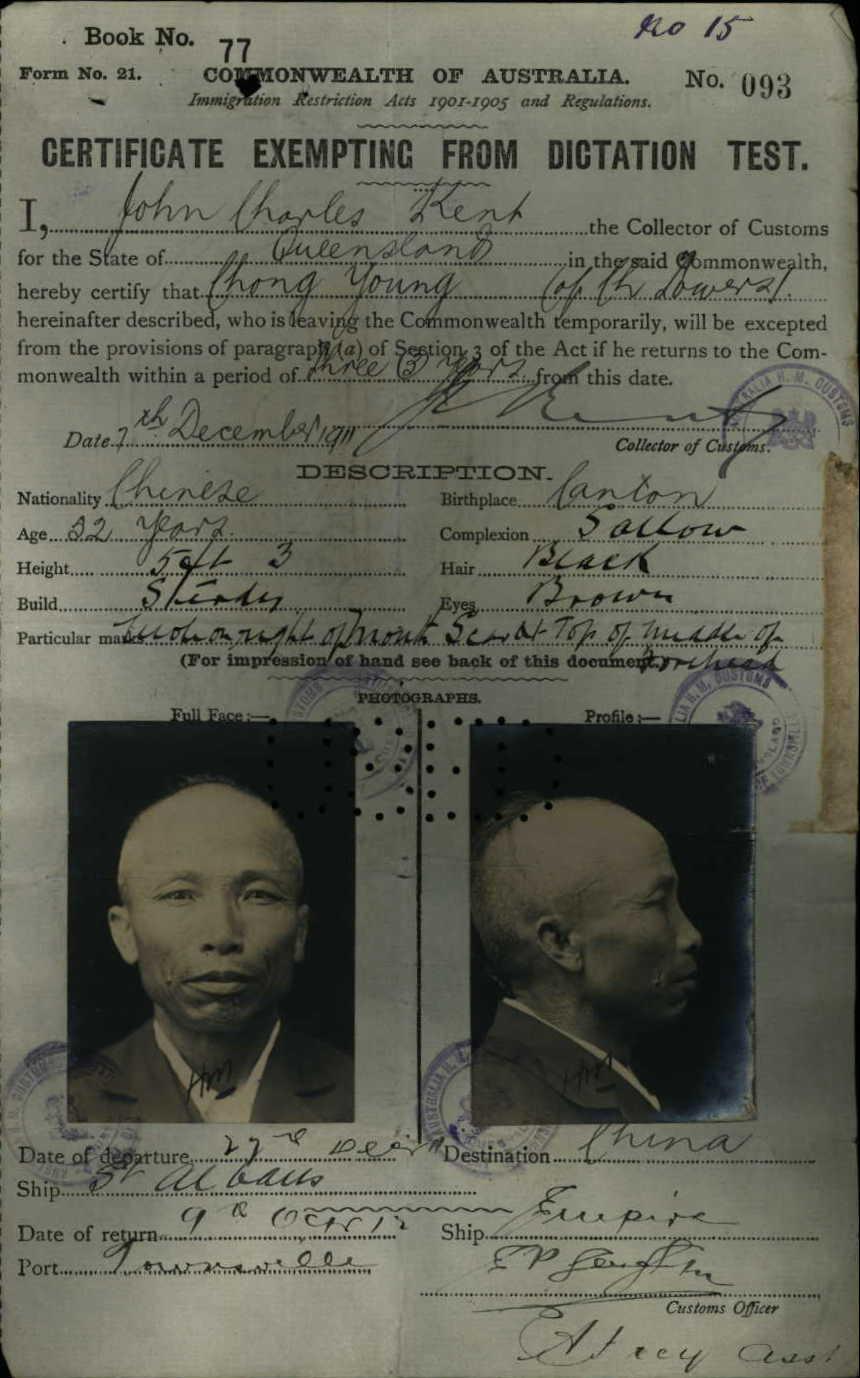 No 15
Book No. 77
Form No. 21. COMMONWEALTH OF AUSTRALIA. No. 093
Immigration Restriction Acts 1901-1905 and Regulations.
CERTIFICATE EXEMPTING FROM DICTATION TEST.
I, John Charles Kent the Collector of Customs
for the State of Queensland in the said Commonwealth,
hereby certify that Chong Young (of Ch Towers).
hereinafter described, who is leaving the Commonwealth temporarily, will be excepted
from the provisions of paragraph (a) of Section 3 of the Act if he returns to the Com-
monwealth within a period of three (3) years from this date.
Date 7th December 1911 Collector of Customs.
DESCRIPTION.
Nationality Chinese Birthplace Canton
Age 52 years. Complexion Sallow
Height 5ft 3 Hair Black
Build Sturdy Eyes Brown
Particular marks right of Mouth Scar at Top of Middle of
(For impression of hand see back of this document.) Forehead
PHOTOGRAPHS.
Full Face:— Profile:—
HM HM
Date of departure 22nd Decr 11 Destination China
Ship St Albans
Date of return 9th Octr 12 Ship Empire
Port Townsville
Customs Officer